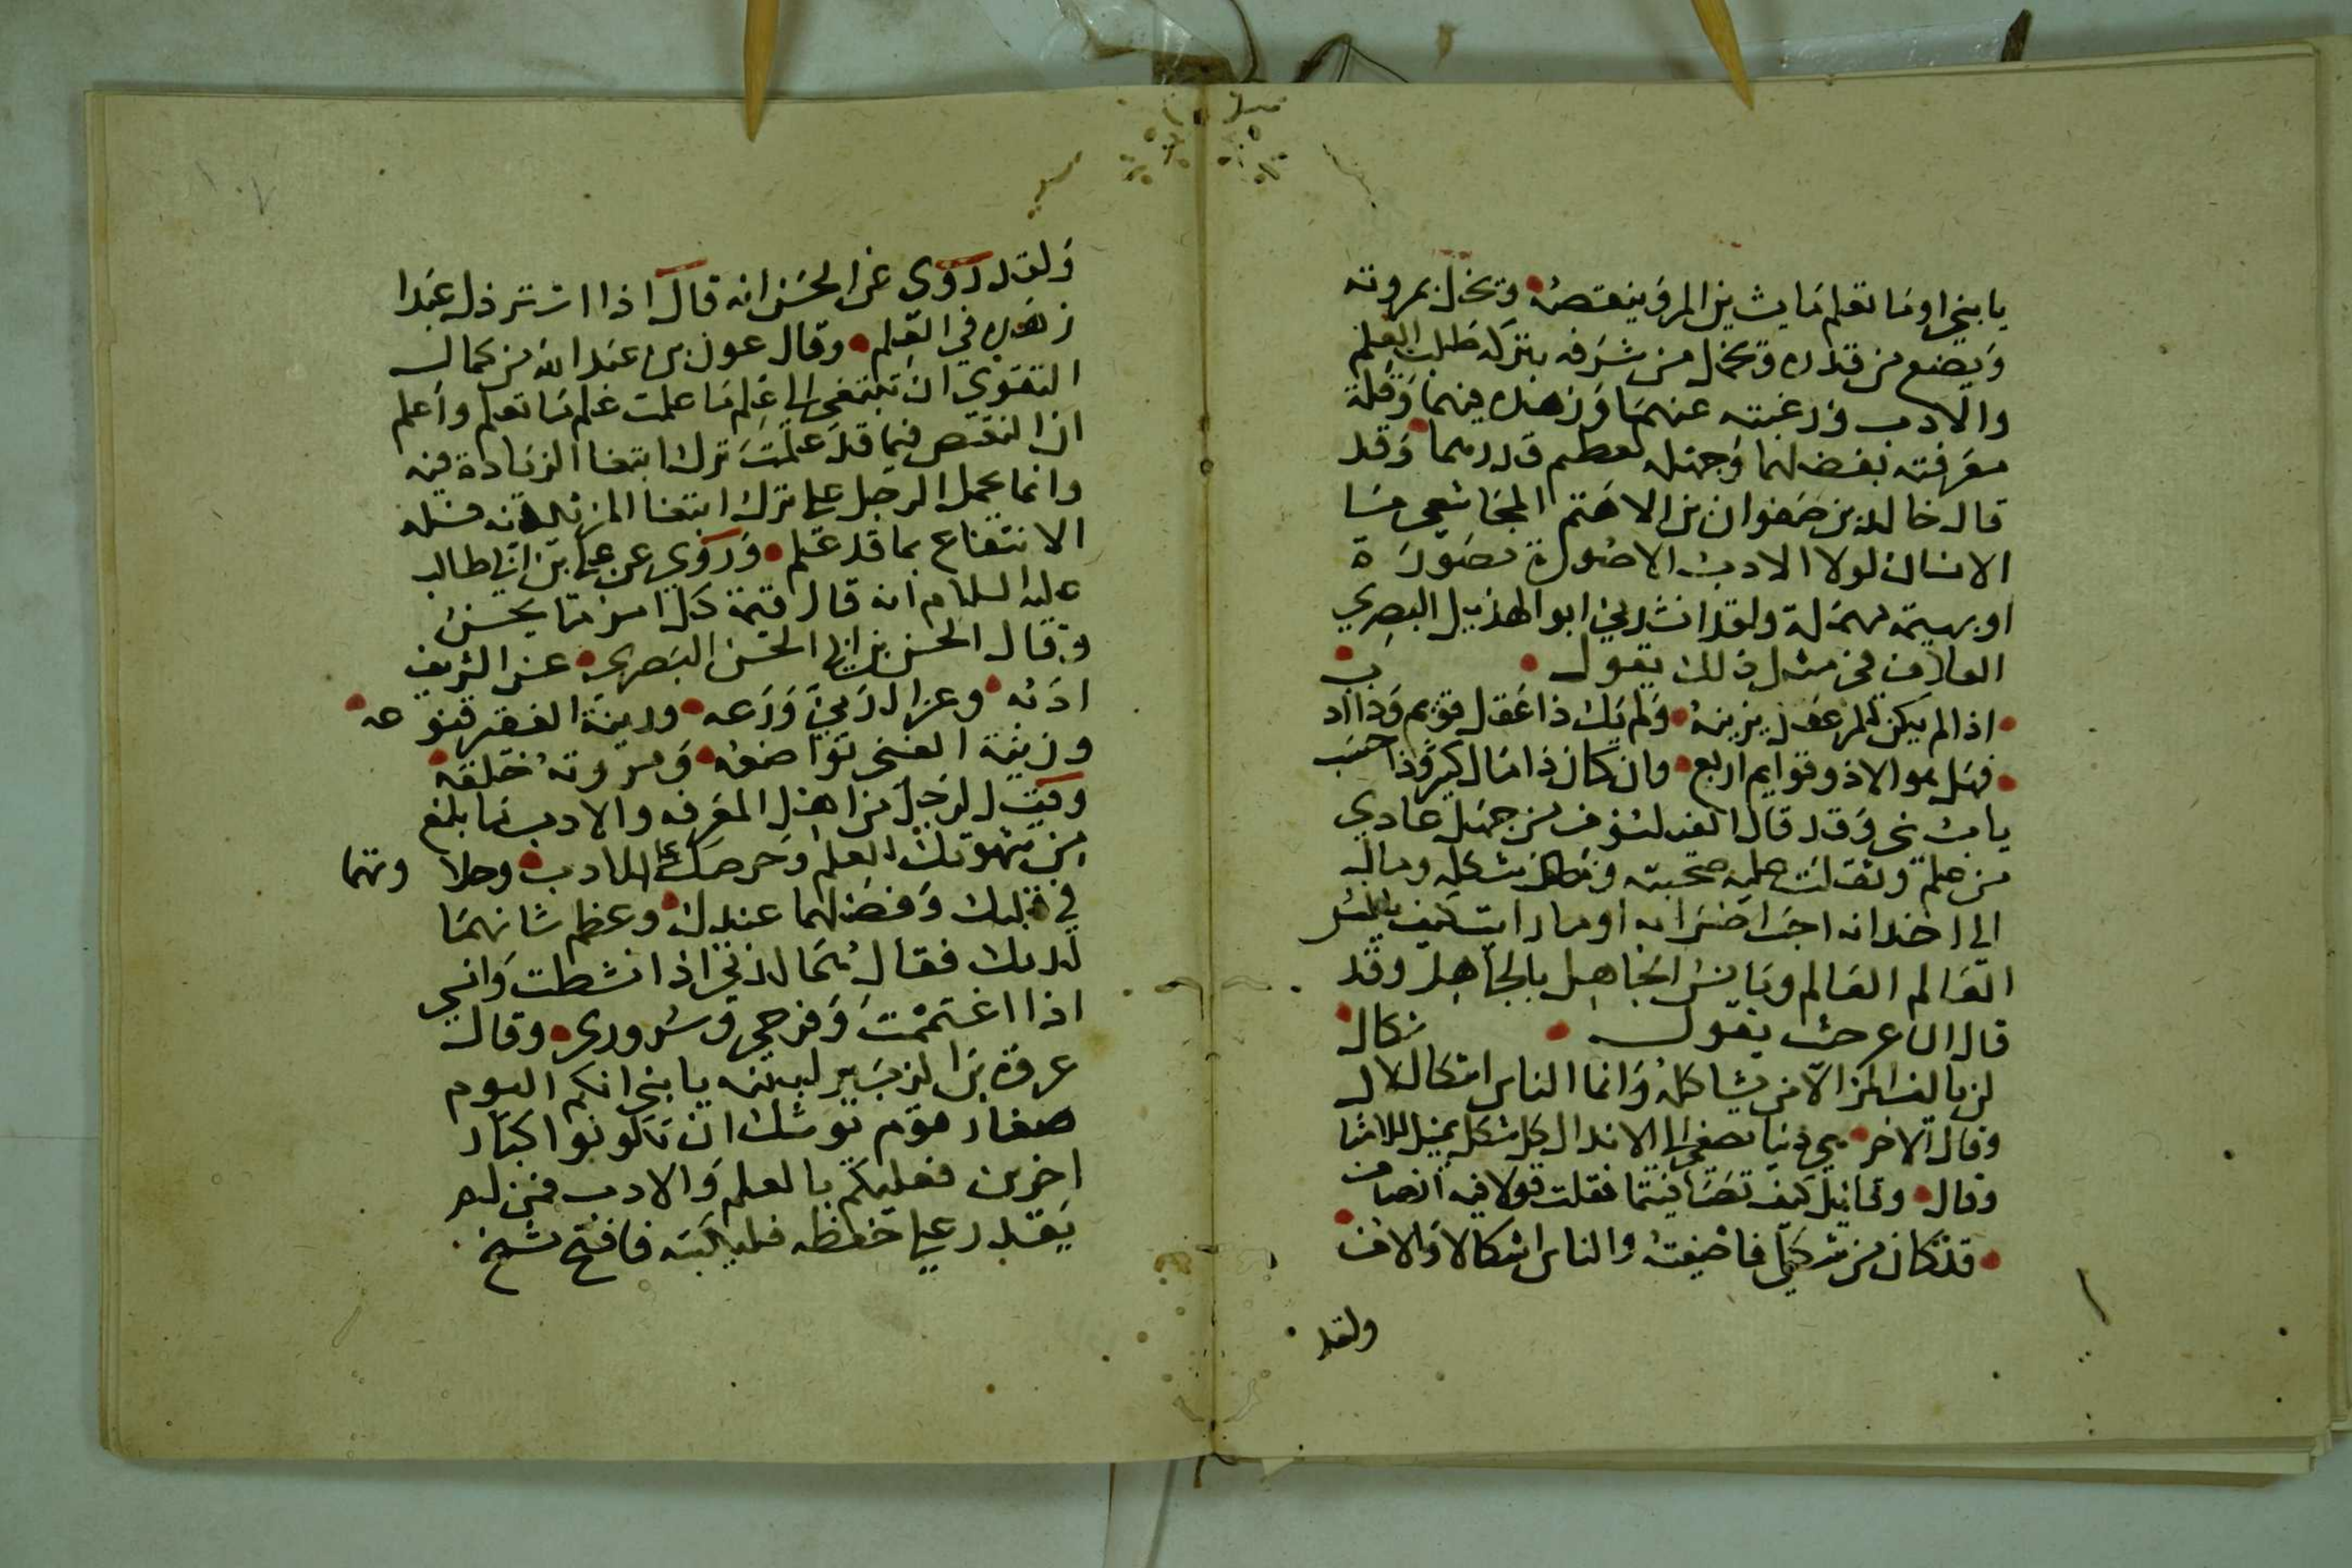 يا بني او ما تعلم ما يشين المرؤ ينقصه وتخل بمروته
ويضع من قدره وتخل من شرفه بتركه طلب العلم
والادب ورغبته عنهما وزهده فيهما وقلة
معرفته بفضلهما وجهله لعظم قدرهما وقد
قال خالد بن صفوان بن الاهتم المجاشعي ما
الانسان لولا الادب الا صورة مصورة
او بهيمة مهملة ولقد انشدني ابو الهذيل البصري
العلاف في مثل ذلك يقول
اذا لم يكن للمر عقل يزينه ولم يك ذا عقل قويم وذا ادب
فهل هو الا ذو قوايم اربع وان كان ذا مال كبير وذا حسب
يا بني وقد قال الفيلسوف من جهل عادي
من علم وثقلت عليه صحبته ومال
الى اخدانه اضرابه او ما رايت كيف
العالم العالم ويانس الجاهل بالجاهل وقد
قال ابن عرحث يقول
لن يالف المرء الا من يشاكله وانما الناس اشكال لاشكال
وقال الاخر كل شكل يميل
وقال وقايل كيف تصافيتما فقلت قولا فيه انصاف
قد كان من شكلي فاضفته والناس اشكال والاف
ولقد
ولقد روي عن الحسن انه قال اذا استرذل عبدا
زهده في العلم وقال عون بن عبد الله من كمال
التقوي ان تبتغي الى علم ما علمت علم ما تعلم واعلم
ان النقص فيما قد علمت ترك ابتغا الزيادة فيه
وانما يحمل الرجل على ترك ابتغا المزيد فيه قلة
الانتفاع بما قد علم وروي عن علي بن ابي طالب
عليه السلام انه قال قيمة كل امرء ما يحسن
وقال الحسن بن ابي الحسن البصري عز الشريف
ادبه وعز الدين ورعه وزينة الفقير قنوعه
وزينة الغني تواضعه ومروته خلقه
وقيل لرجل من اهل المعرفه والادب ما بلغ
من شهوتك العلم وحرصك على الادب وحلاوتهما
في قلبك وفضلهما عندك وعظم شانهما
لديك فقال هما لذتي اذا نشطت وانسي
اذا اغتممت وفرحي وسروري وقال
عروة بن الزبير لبنيه يا بني انكم اليوم
صغار قوم توشك ان تكونوا كبار
اخرين فعليكم بالعلم والادب فمن لم
يقدر على حفظه فليكتبه فافتح شيخ